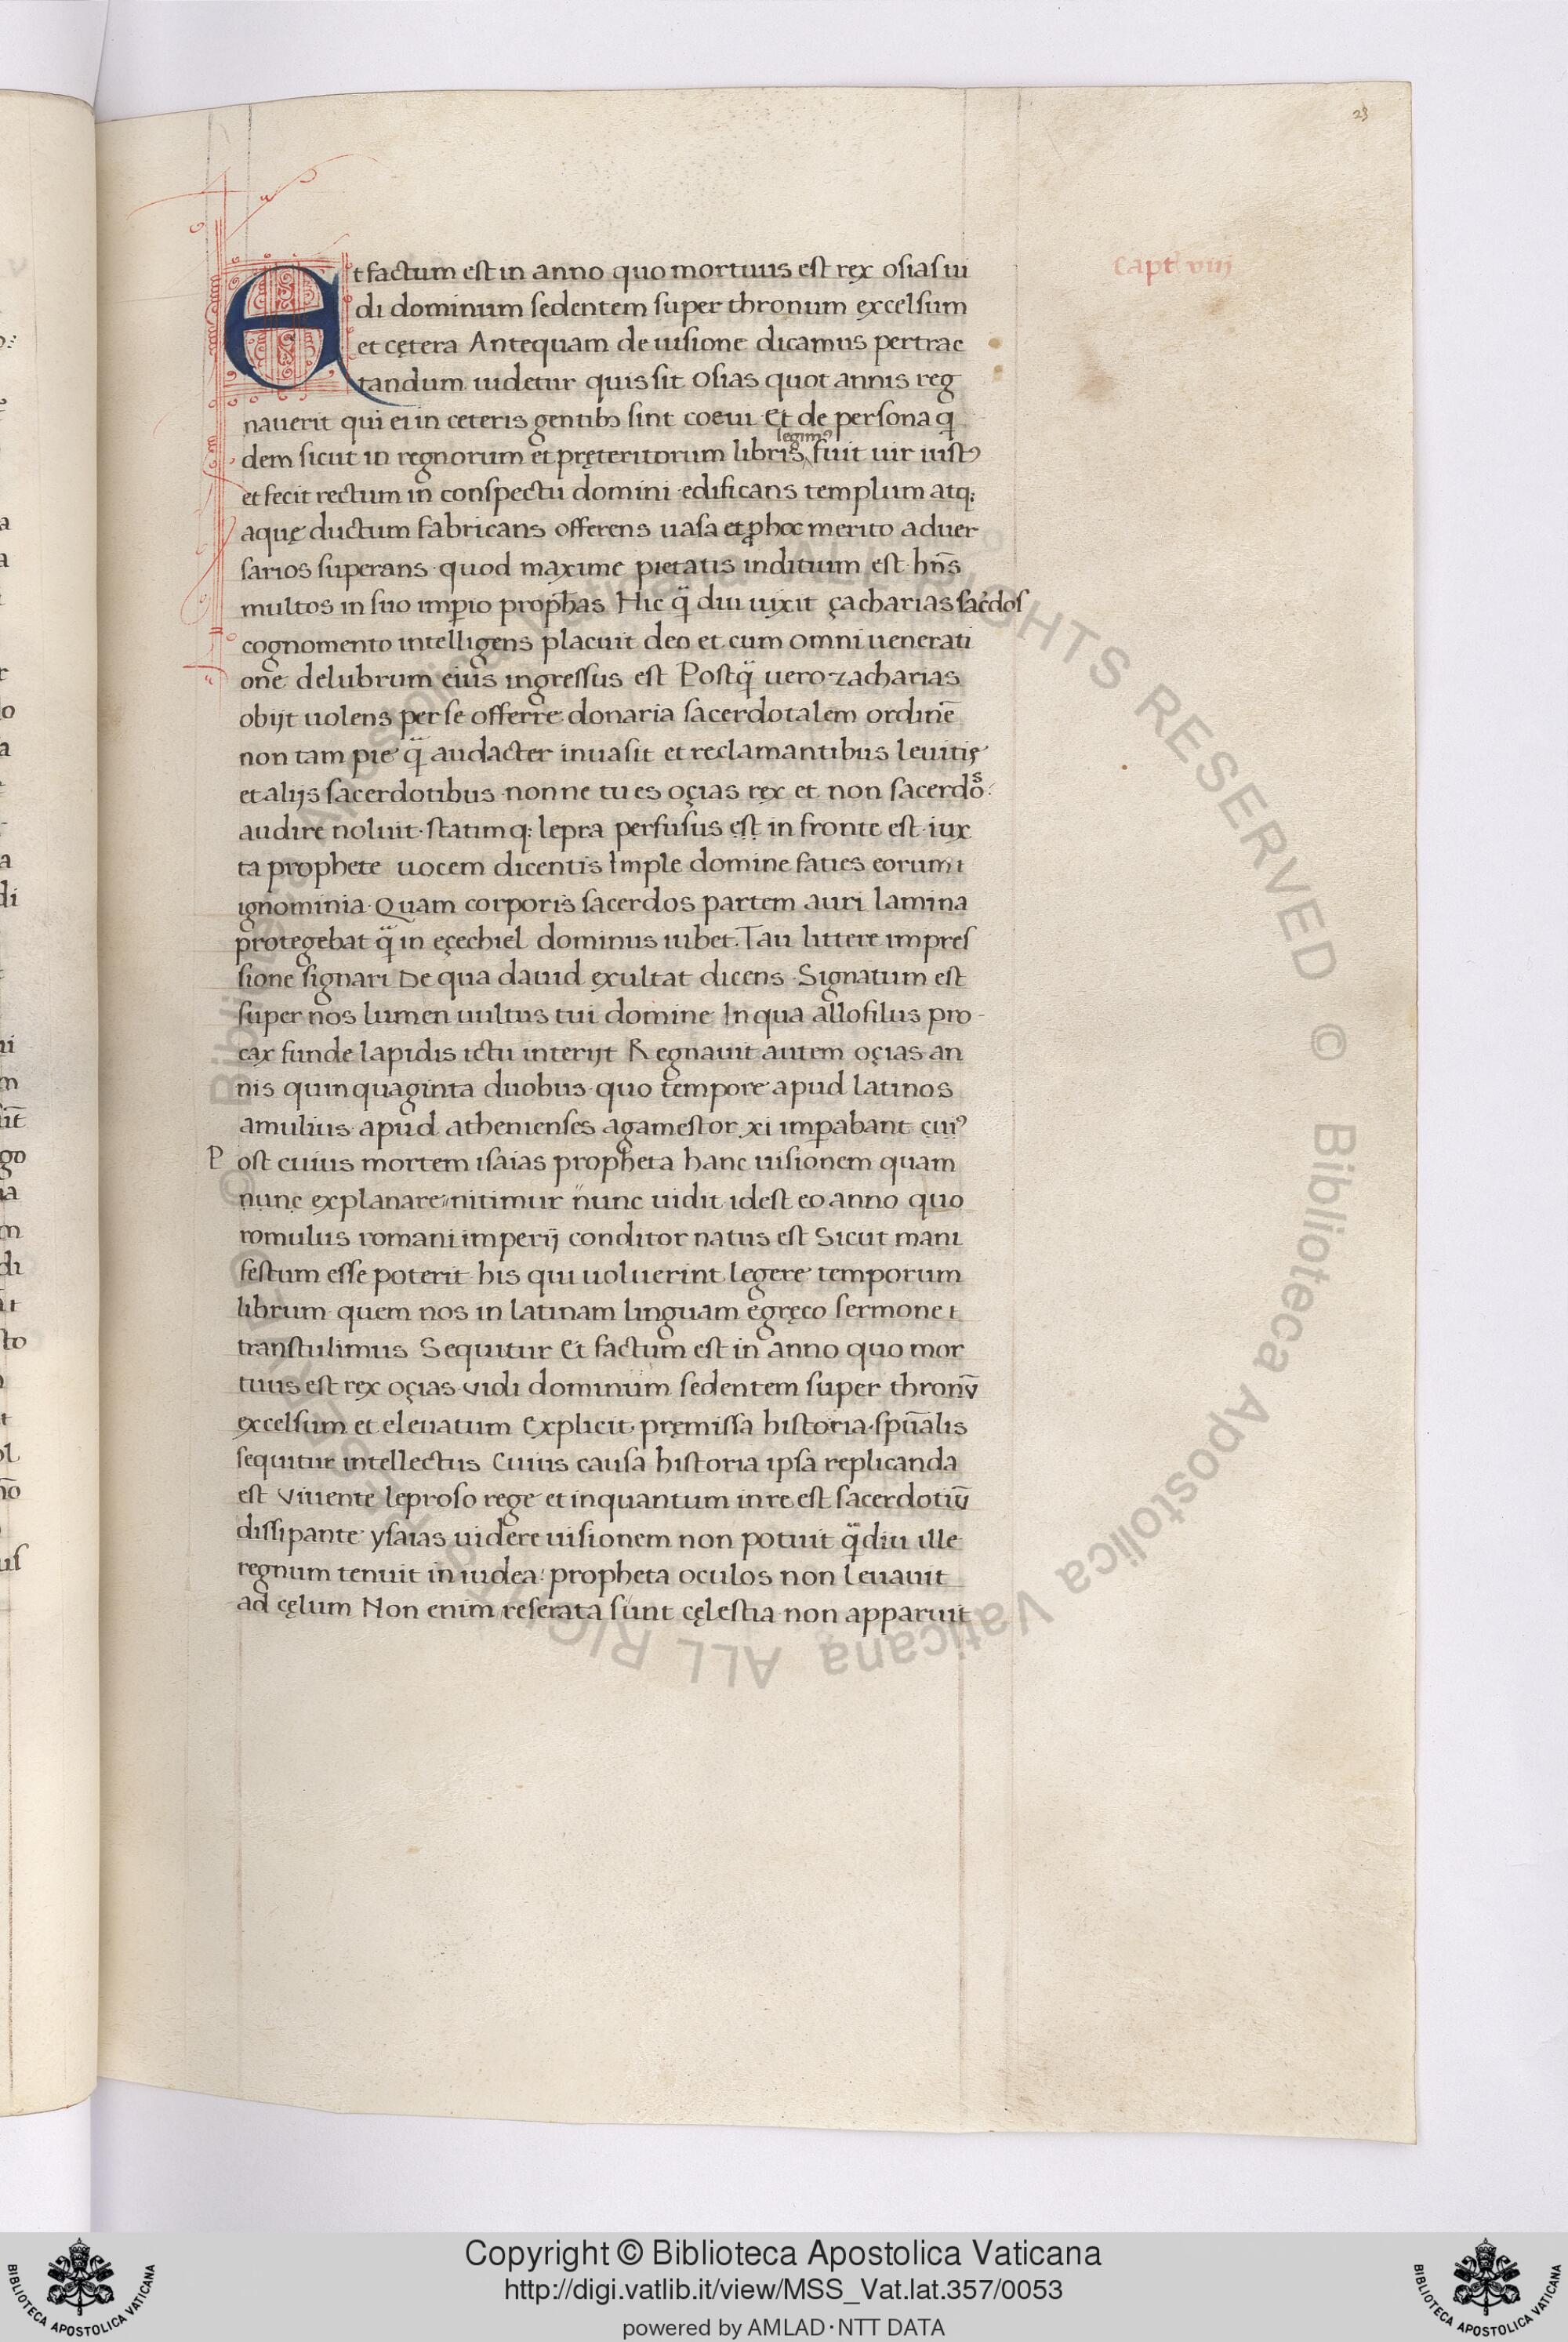 23
Capt viij
Et factum est in anno quo mortuus est rex osias ui
di dominum sedentem super thronum excelsum
et cętera Antequam de uisione dicamus pertrac
tandum uidetur quis sit Osias quot annis reg
nauerit qui ei in ceteris gentibꝫ sint coeui Et de persona q̇
legimꝰ
dem sicut in regnorum et pręteritorum libris fuit uir iustꝰ
et fecit rectum in conspectu domini edificans templum atq;
aquę ductum fabricans offerens uasa et ꝓ hoc merito aduer
sarios superans quod maxime pietatis inditium est hñs
multos in suo imꝑio prophas Hic q̈̄ diu uixit çacharias sac̄dos
cognomento intelligens placuit deo et cum omni uenerati
one delubrum eius ingressus est Postq̈̄ uero zacharias
obijt uolens per se offerre donaria sacerdotalem ordinē
non tam pie q̈̄ audacter inuasit et reclamantibus leuitis
et alijs sacerdotibus nonne tu es oçias rex et non sacerdos
audire noluit statimq; lepra perfusus est in fronte est iux
ta prophete uocem dicentis Imple domine faties eorum i
ignominia Quam corporis sacerdos partem auri lamina
protegebat q̈̄ in eçechiel dominus iubet Tau littere impres
sione signari De qua dauid exultat dicens Signatum est
super nos lumen uultus tui domine In qua allofilus pro-
cax funde lapidis ictu interijt Regnauit autem oçias an
nis quinquaginta duobus quo tempore apud latinos
amulius apud athenienses agamestor xi imꝑabant cuiꝰ
Post cuius mortem isaias propheta hanc uisionem quam
nunc explanare nitimur nunc uidit idest eo anno quo
romulus romani imperij conditor natus est Sicut mani
festum esse poterit his qui uoluerint legere temporum
librum quem nos in latinam linguam egręco sermone i
transtulimus Sequitur Et factum est in anno quo mor
tuus est rex oçias vidi dominum sedentem super thronv̄
excelsum et eleuatum Explicit pręmissa historia spūalis
sequitur intellectus Cuius causa historia ipsa replicanda
est Viuente leproso rege et inquantum in re est sacerdotiv̄
dissipante ysaias uidere uisionem non potuit q̈̄diu ille
regnum tenuit in iudea propheta oculos non leuauit
ad cęlum Non enim reserata sunt cęlestia non apparuit
Copyright © Biblioteca Apostolica Vaticana
http://digi.vatlib.it/view/MSS_Vat.lat.357/0053
powered by AMLAD·NTT DATA